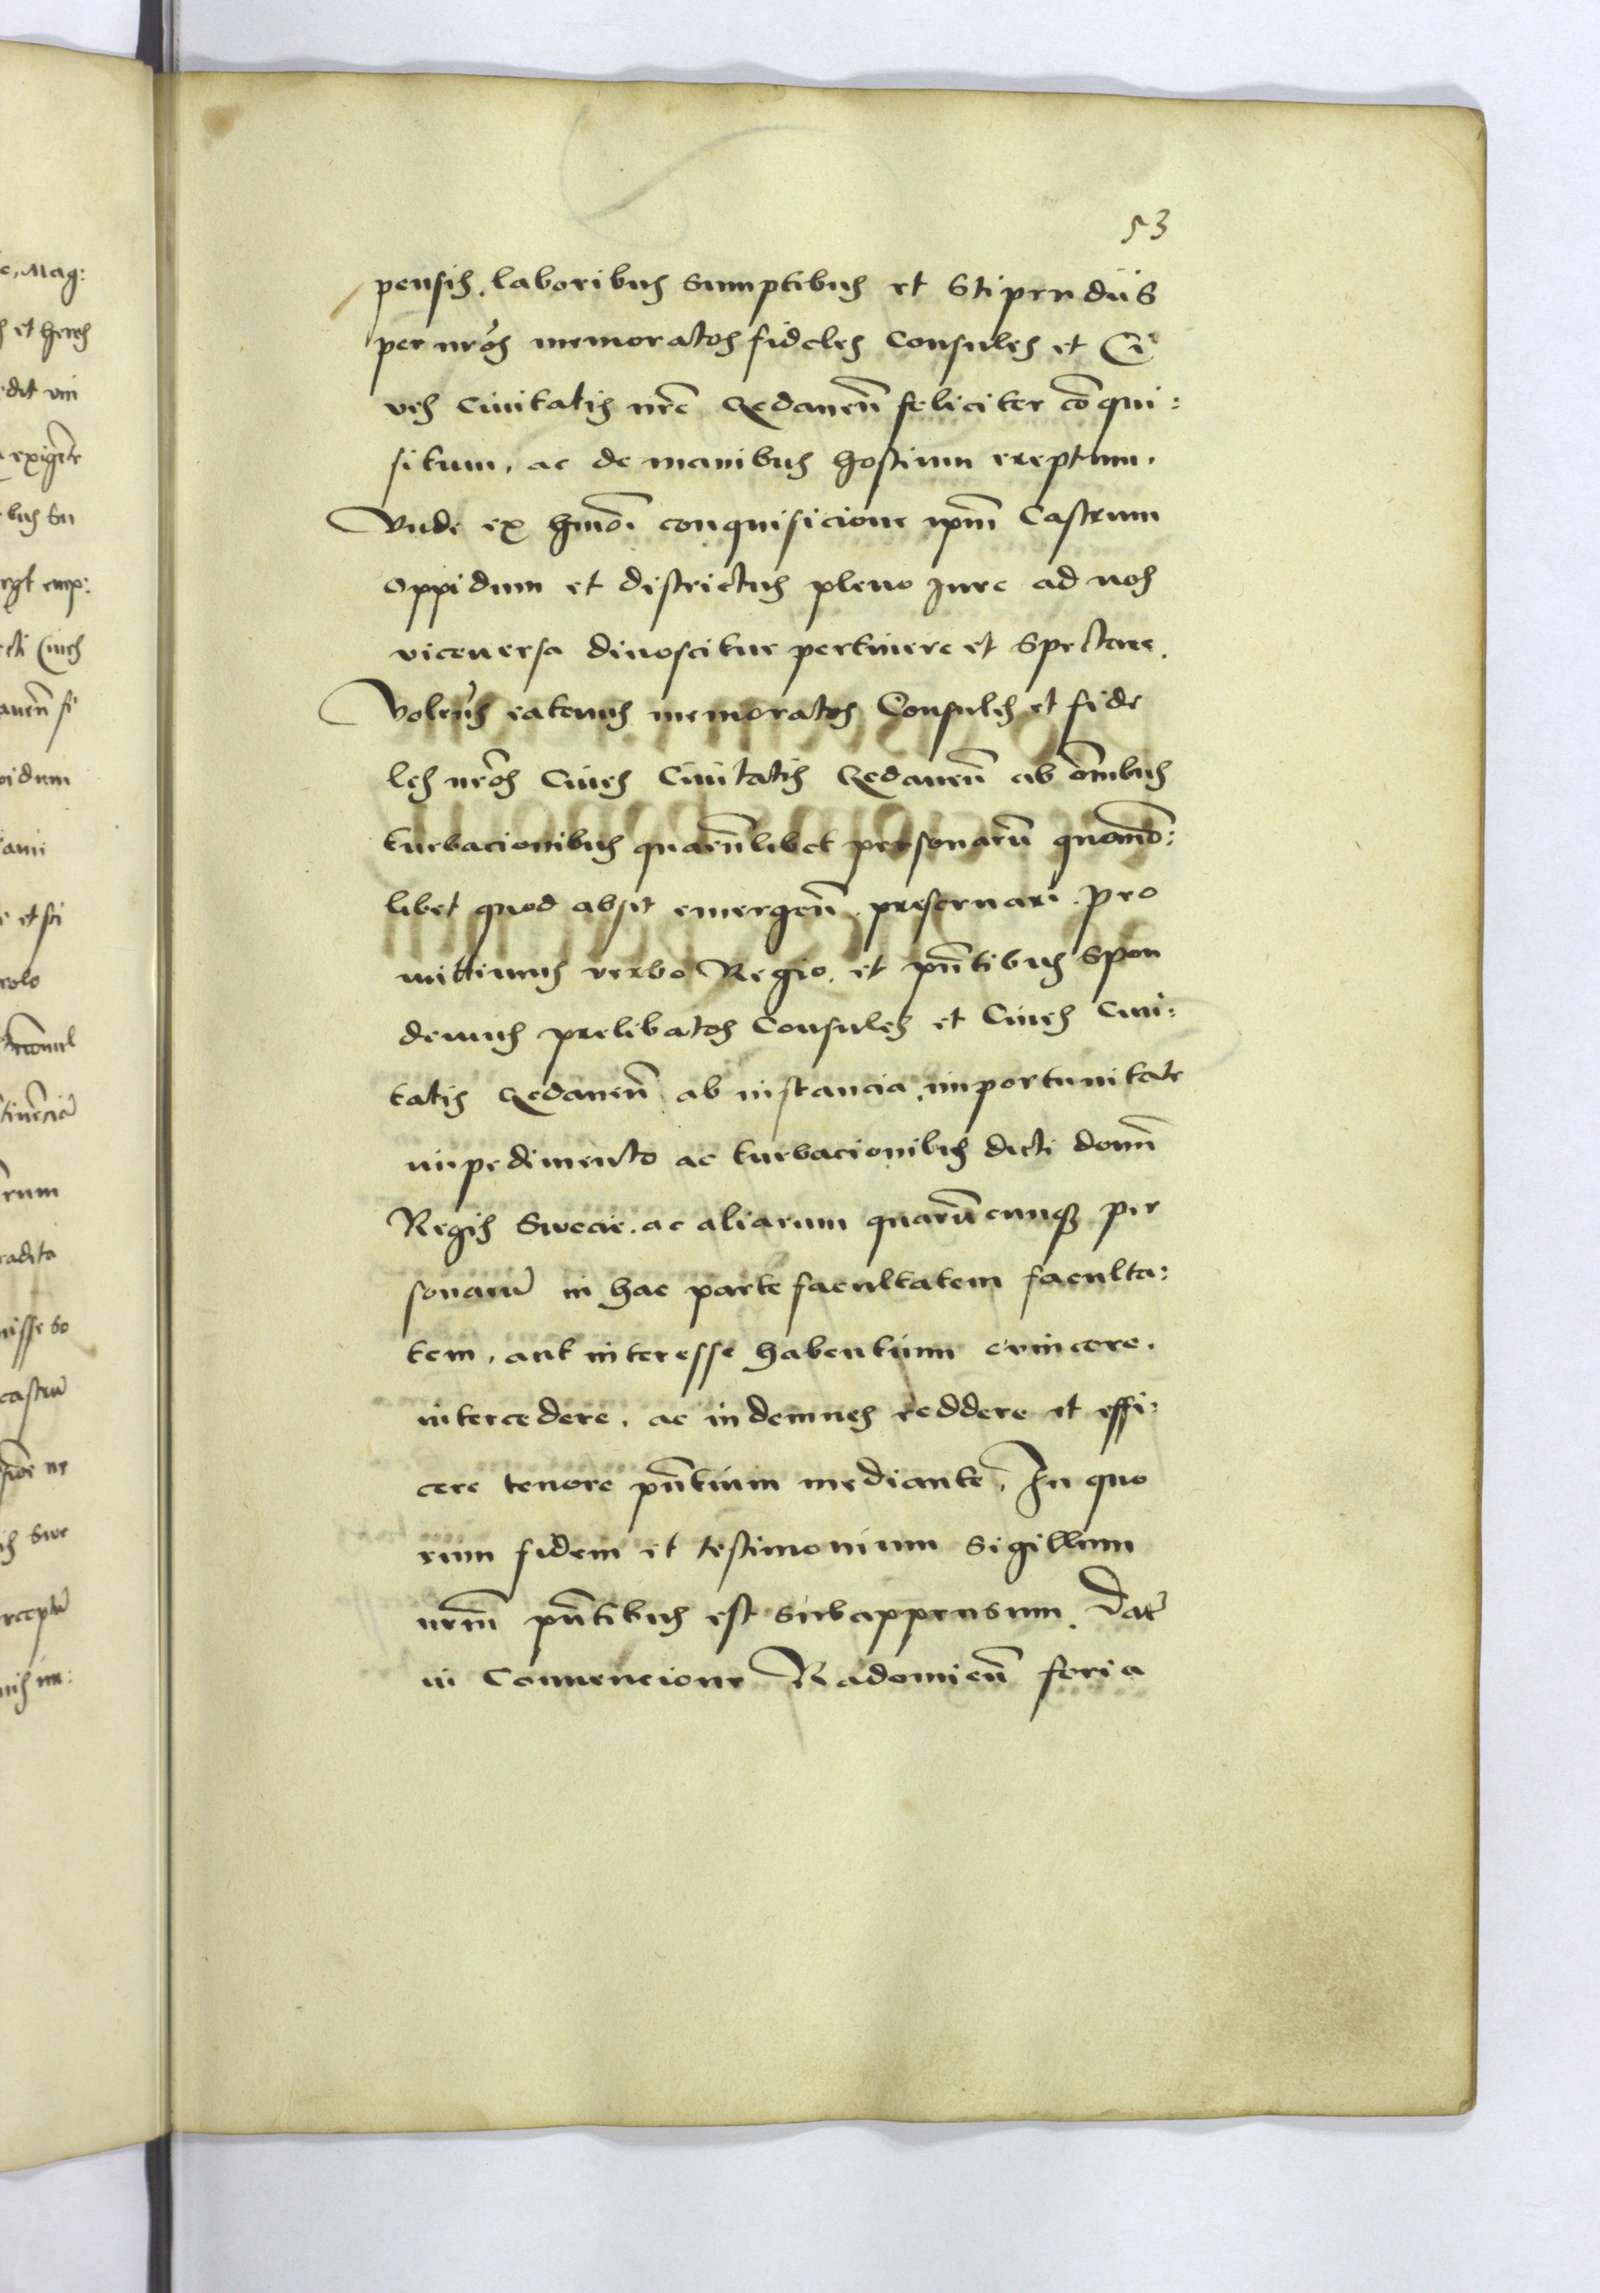 53
pensis. laboribus sumptibus et Stipendiis
per nr̃os memoratos fideles Consules et Ci
ves Ciuitatis nr̃e Gedanen̄ feliciter cōqui:
situm, ac de manibus hostium ereptum.
Vnde ex hmōi conquisicione ipm̄ Castrum
Oppidum et districtus pleno Jure ad nos
viceuersa dinoscitur pertinere et Spectare.
Volen̄s eatenus memoratos Consules et fide
les nr̃os Ciues Ciuitatis Gedanen̄ ab om̄ibus
turbacionibus quarūlibet personarū quomō:
libet quod absit emergen̄. preseruari. Pro
mittimus verbo Regio. et pn̄tibus Spon
demus prelibatos Consules et Ciues Ciui:
tatis Gedanen̄ ab instancia, importunitate
impedimento ac turbacionibus dicti domī
Regis Swecie. ac aliarum quarūcunqꝫ per
sonarū in hac parte facultatem faculta:
tem, aut interesse habentium euincere.
intercedere. ac indemnes reddere et effi:
cere tenore pn̄tium mediante. In quo
rum fidem et testimonium Sigillum
nrm̄ pn̄tibus est subappensum. Dat̄
in Conuencione Radomien̄ feria